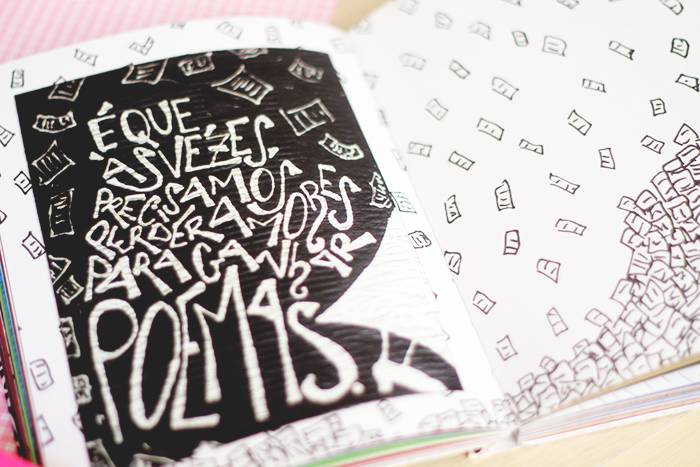 É QUE
ÀS VEZES,
PRECISAMOS
PERDER AMORES
PARA GANHAR
POEMAS.